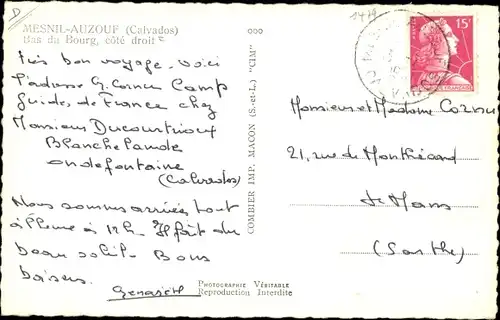 D
1479
MESNIL-AUZOUF (Calvados)
Bas du Bourg, côté droit
Très bon voyage. Voici
l'adresse G. Cornu Camp
Guides de France chez
Monsieur Ducourtrioux
Blanchelande
ondefontaine
(Calvados)
Nous sommes arrivées tout
à l'heure à 12h. Il fait du
beau soleil. Bons
baisers.
COMBIER IMP. MACON (S.-et-L.) "CIM"
PHOTOGRAPHIE VÉRITABLE
Reproduction Interdite
15F
Monsieur et Madame Cornu
21, rue de
Le Mans
(Sarthe)